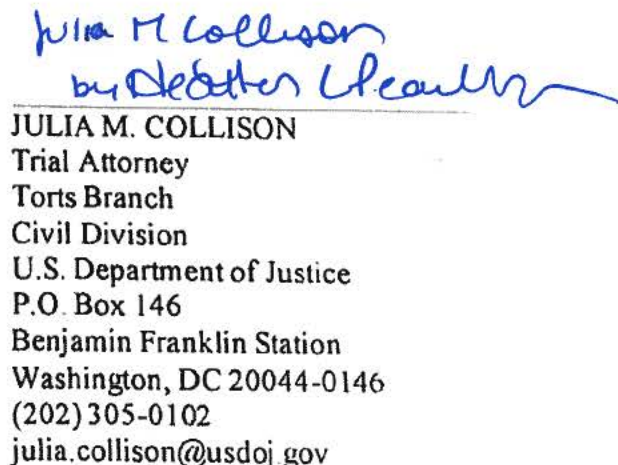 Julia M Collison
by Heather
JULIA M. COLLISON
Trial Attorney
Torts Branch
Civil Division
U.S. Department of Justice
P.O. Box 146
Benjamin Franklin Station
Washington, DC 20044-0146
(202) 305-0102
julia.collison@usdoj.gov